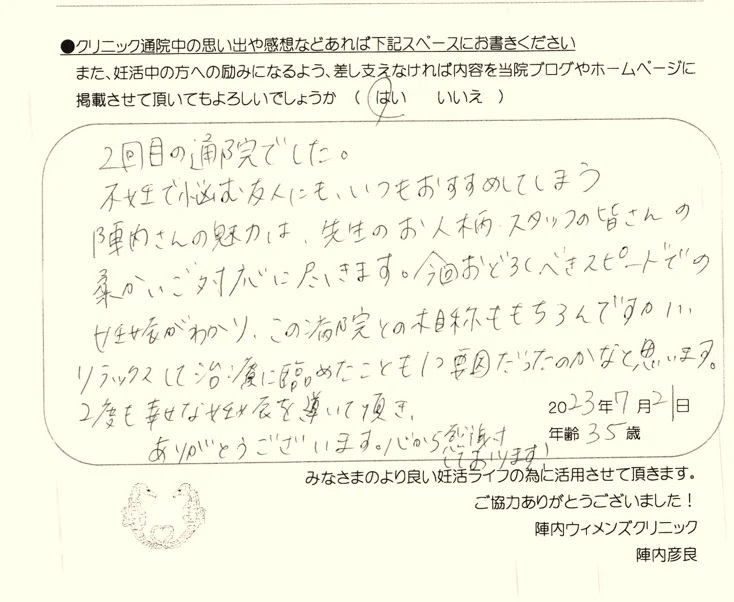 ●クリニック通院中の思い出や感想などあれば下記スペースにお書きください
また、妊活中の方への励みになるよう、差し支えなければ内容を当院ブログやホームページに
掲載させて頂いてもよろしいでしょうか （ はい いいえ ）
2回目の通院でした。
不妊で悩む友人にも、いつもおすすめしてしまう
陣内さんの魅力は、先生のお人柄・スタッフの皆さんの
柔かいご対応に尽きます。今回おどろくべきスピードでの
妊娠がわかり、この病院との相称ももちろんですが、
リラックスして治療に臨めたことも1つ要因だったのかなと思います。
2度も幸せな妊娠を導いて頂き、
ありがとうございます。心から感謝
しております！
2023年7月21日
年齢 35歳
みなさまのより良い妊活ライフの為に活用させて頂きます。
ご協力ありがとうございました！
陣内ウィメンズクリニック
陣内彦良